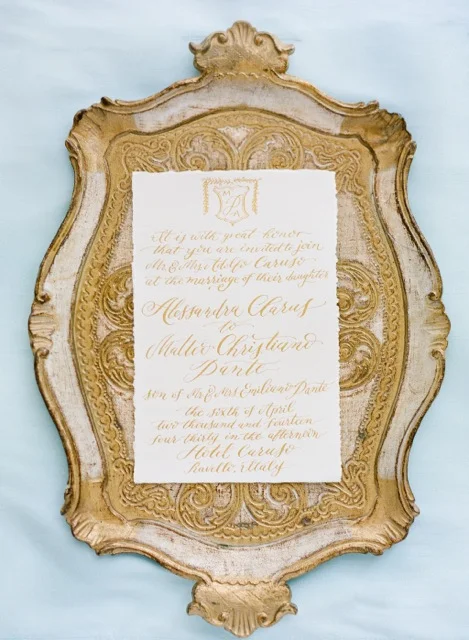 It is with great honor
that you are invited to join
Mr. & Mrs. Adolfo Caruso
at the marriage of their daughter
Alessandra Clarus
to
Matteo Christiano
Dante
son of Mr & Mrs Empliano Dante
the sixth of April
two thousand and fourteen
four thirty in the afternoon
Hotel Caruso
Ravello, Italy